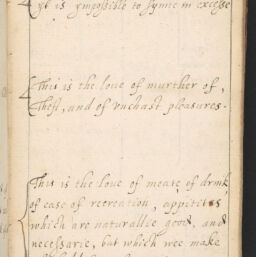 yt is ympossible to synne in excesse
This is the loue of murther of,
Theft, and of vnchast pleasures.
This is the loue of meate, of drink
of ease of recreation, appitites
which are naturallie good, and
necessarie, but which wee make